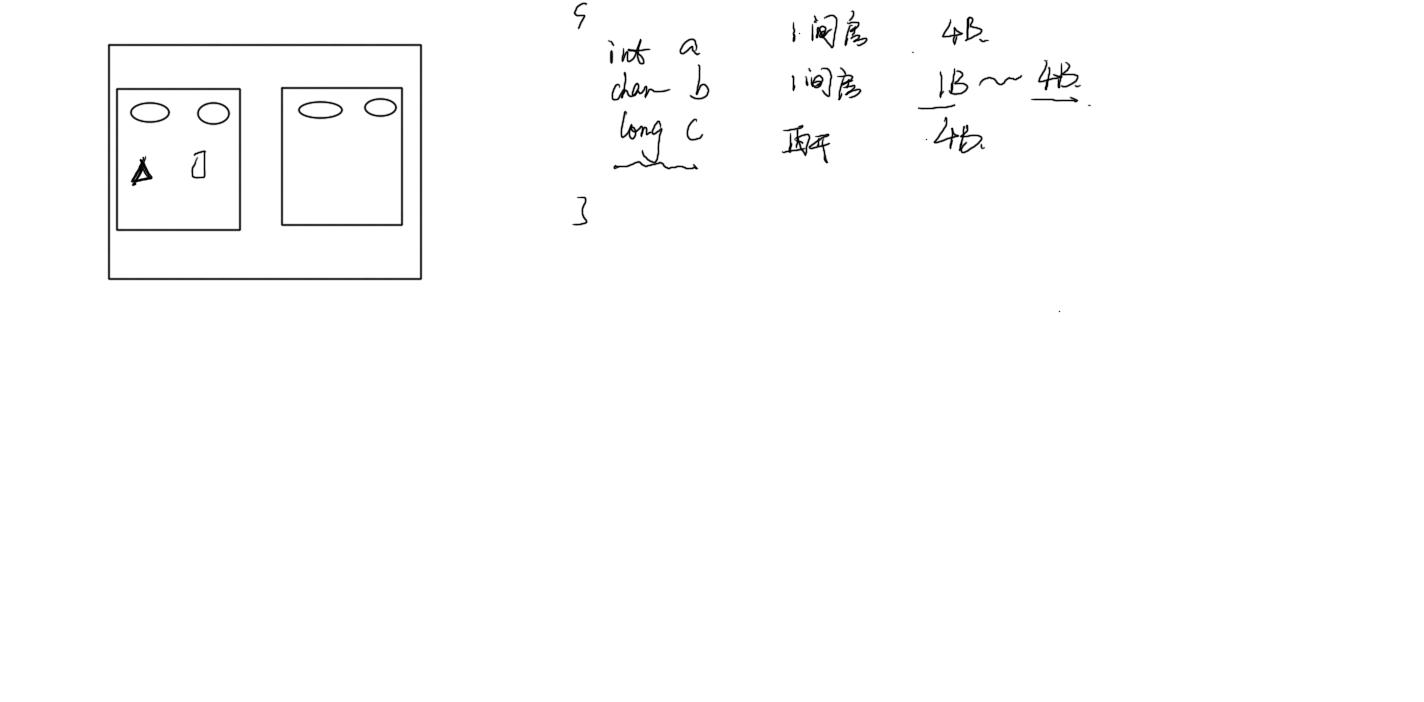 {
int a 1间房 4B.
char b 1间房 1B ~ 4B.
long c 再开 4B.
}